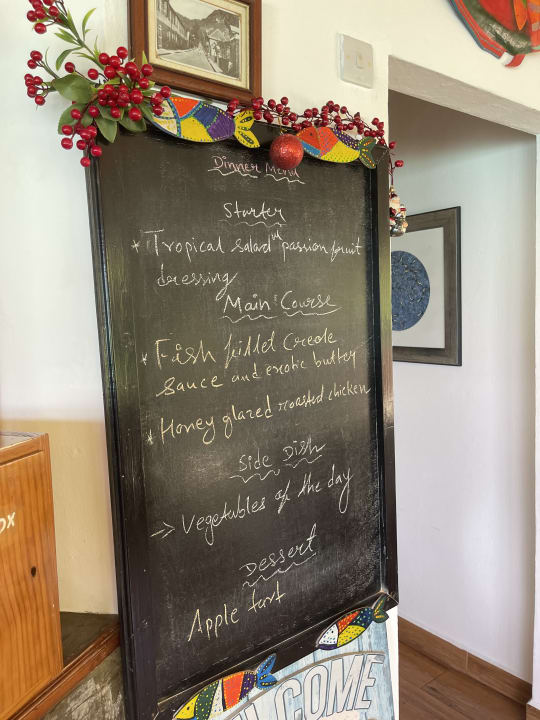 Dinner Menu
Starter
* Tropical salad wt passion fruit
dressing
Main Course
* Fish fillet Creole
sauce and exotic butter
* Honey glazed roasted chicken
Side Dish
=> Vegetables of the day
Dessert
Apple tart
LCOME
OX